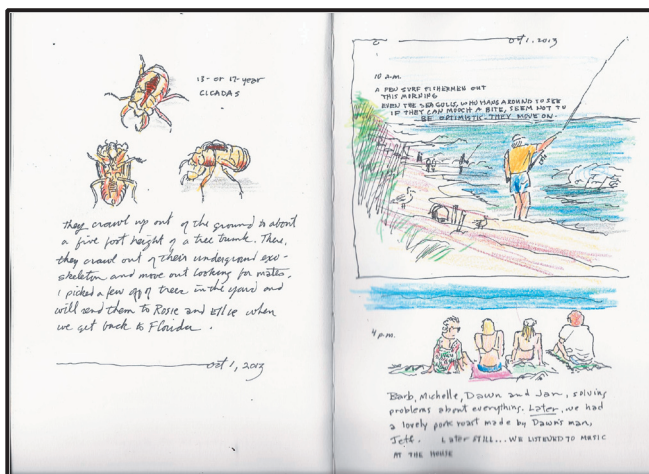 13- or 17-year
CICADAS
they crawl up out of the ground to about
a five foot height of a tree trunk. There,
they crawl out of their underground exo-
skeleton and move out looking for mates,
I picked a few off of trees in the yard and
will send them to Rosie and Ellie when
we get back to Florida.
Oct 1, 2013
Oct 1. 2013
10 a.m.
A FEW SURF FISHERMEN OUT
THIS MORNING
EVEN THE SEAGULLS, WHO HANG AROUND TO SEE
IF THEY CAN MOOCH A BITE, SEEM NOT TO
BE OPTIMISTIC. THEY MOVE ON.
4 p.m.
Barb, Michelle, Dawn and Jan, solving
problems about everything. Later, we had
a lovely pork roast made by Dawn's man,
Jeff. LATER STILL... WE LISTENED TO MUSIC
AT THE HOUSE